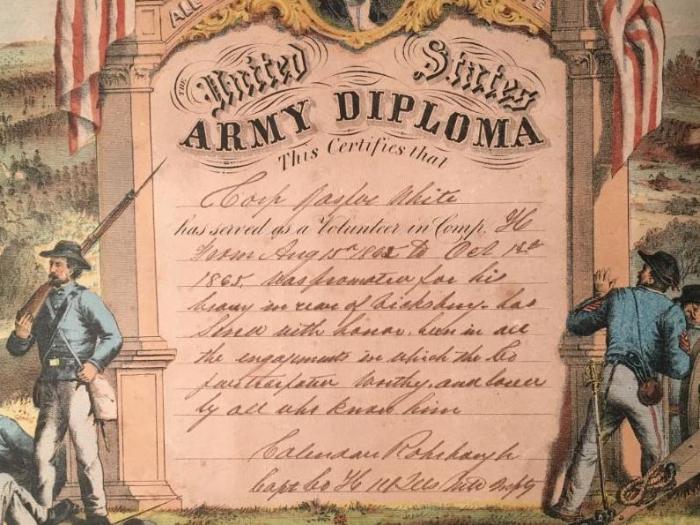 ALL
THE United States
ARMY DIPLOMA
This Certifies that
Corp Jasper White
has served as a Volunteer in Comp. H
From Aug 15th 1862 to Oct 12th
1865. was promoted for his
bravry in rear of Vicksburg. has
served with honor, been in all
the engagements in which the Co
participated worthy, and loved
by all who know him
Calendar Rohrbough
Capt Co H Ills Infty